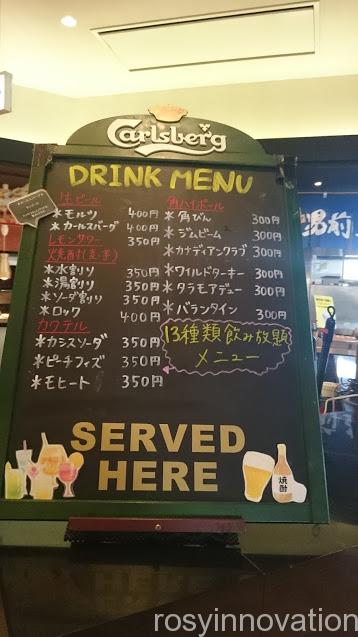 Carlsberg
DRINK MENU
生ビール
*モルツ 400円
*カールスバーグ 400円
レモンサワー 350円
焼酎(麦・芋)
*水割り 350円
*湯割り 350円
*ソーダ割り 350円
*ロック 400円
カクテル
*カシスソーダ 350円
*ピーチフィズ 350円
*モヒート 350円
角ハイボール
*角びん 300円
*ジムビーム 300円
*カナディアンクラブ 300円
*ワイルドターキー 300円
*タラモアデュー 300円
*バランタイン 300円
13種類飲み放題
メニュー
SERVED
HERE
焼酎
男前
rosyinnovation